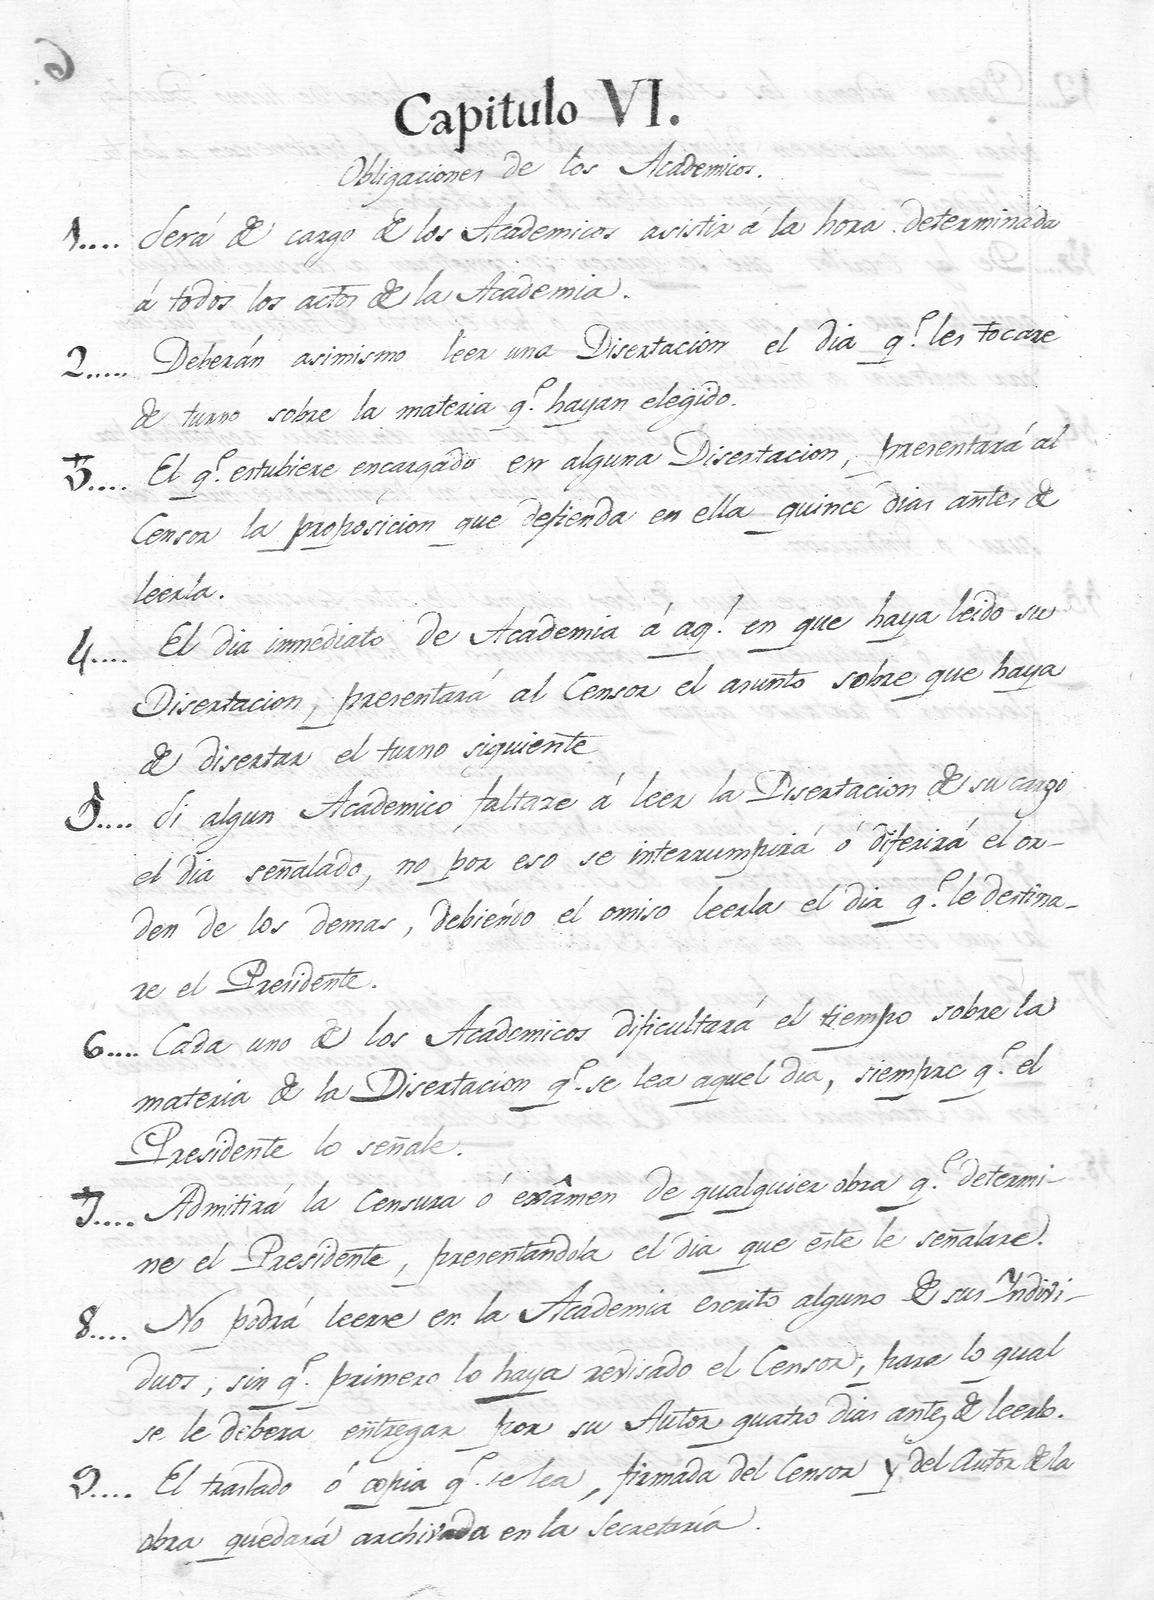 6.
Capitulo VI.
Obligaciones de los Academicos.
1.... Será de cargo de los Academicos asistir á la hora determinada
á todos los actos de la Academia.
2..... Deberán asimismo leer una Disertacion el dia q.e les tocare
de turno sobre la materia q.e hayan elegido.
3.... El q.e estubiere encargado en alguna Disertacion, presentará al
Censor la proposicion que defienda en ella quince dias antes de
leerla.
4.... El dia inmediato de Academia á aq.l en que haya leido su
Disertacion, presentará al Censor el asunto sobre que haya
de disertar el turno siguiente
5.... Si algun Academico faltare á leer la Disertacion de su cargo
el dia señalado, no por eso se interrumpirá ó diferirá el or-
den de los demas, debiendo el omiso leerla el dia q.e le destina-
re el Presidente.
6.... Cada uno de los Academicos dificultará el tiempo sobre la
materia de la Disertacion q.e se lea aquel dia, siempre q.e el
Presidente lo señale.
7.... Admitirá la Censura ó exâmen de qualquier obra q.e determi-
ne el Presidente, presentandola el dia que este le señalare.
8.... No podrá leerse en la Academia escrito alguno de sus Indivi-
duos, sin q.e primero lo haya revisado el Censor, para lo qual
se le debera entregar por su Autor quatro dias antes de leerlo.
9.... El traslado ó copia q.e se lea, firmada del Censor y del Autor de la
obra quedará archivada en la Secretaría.